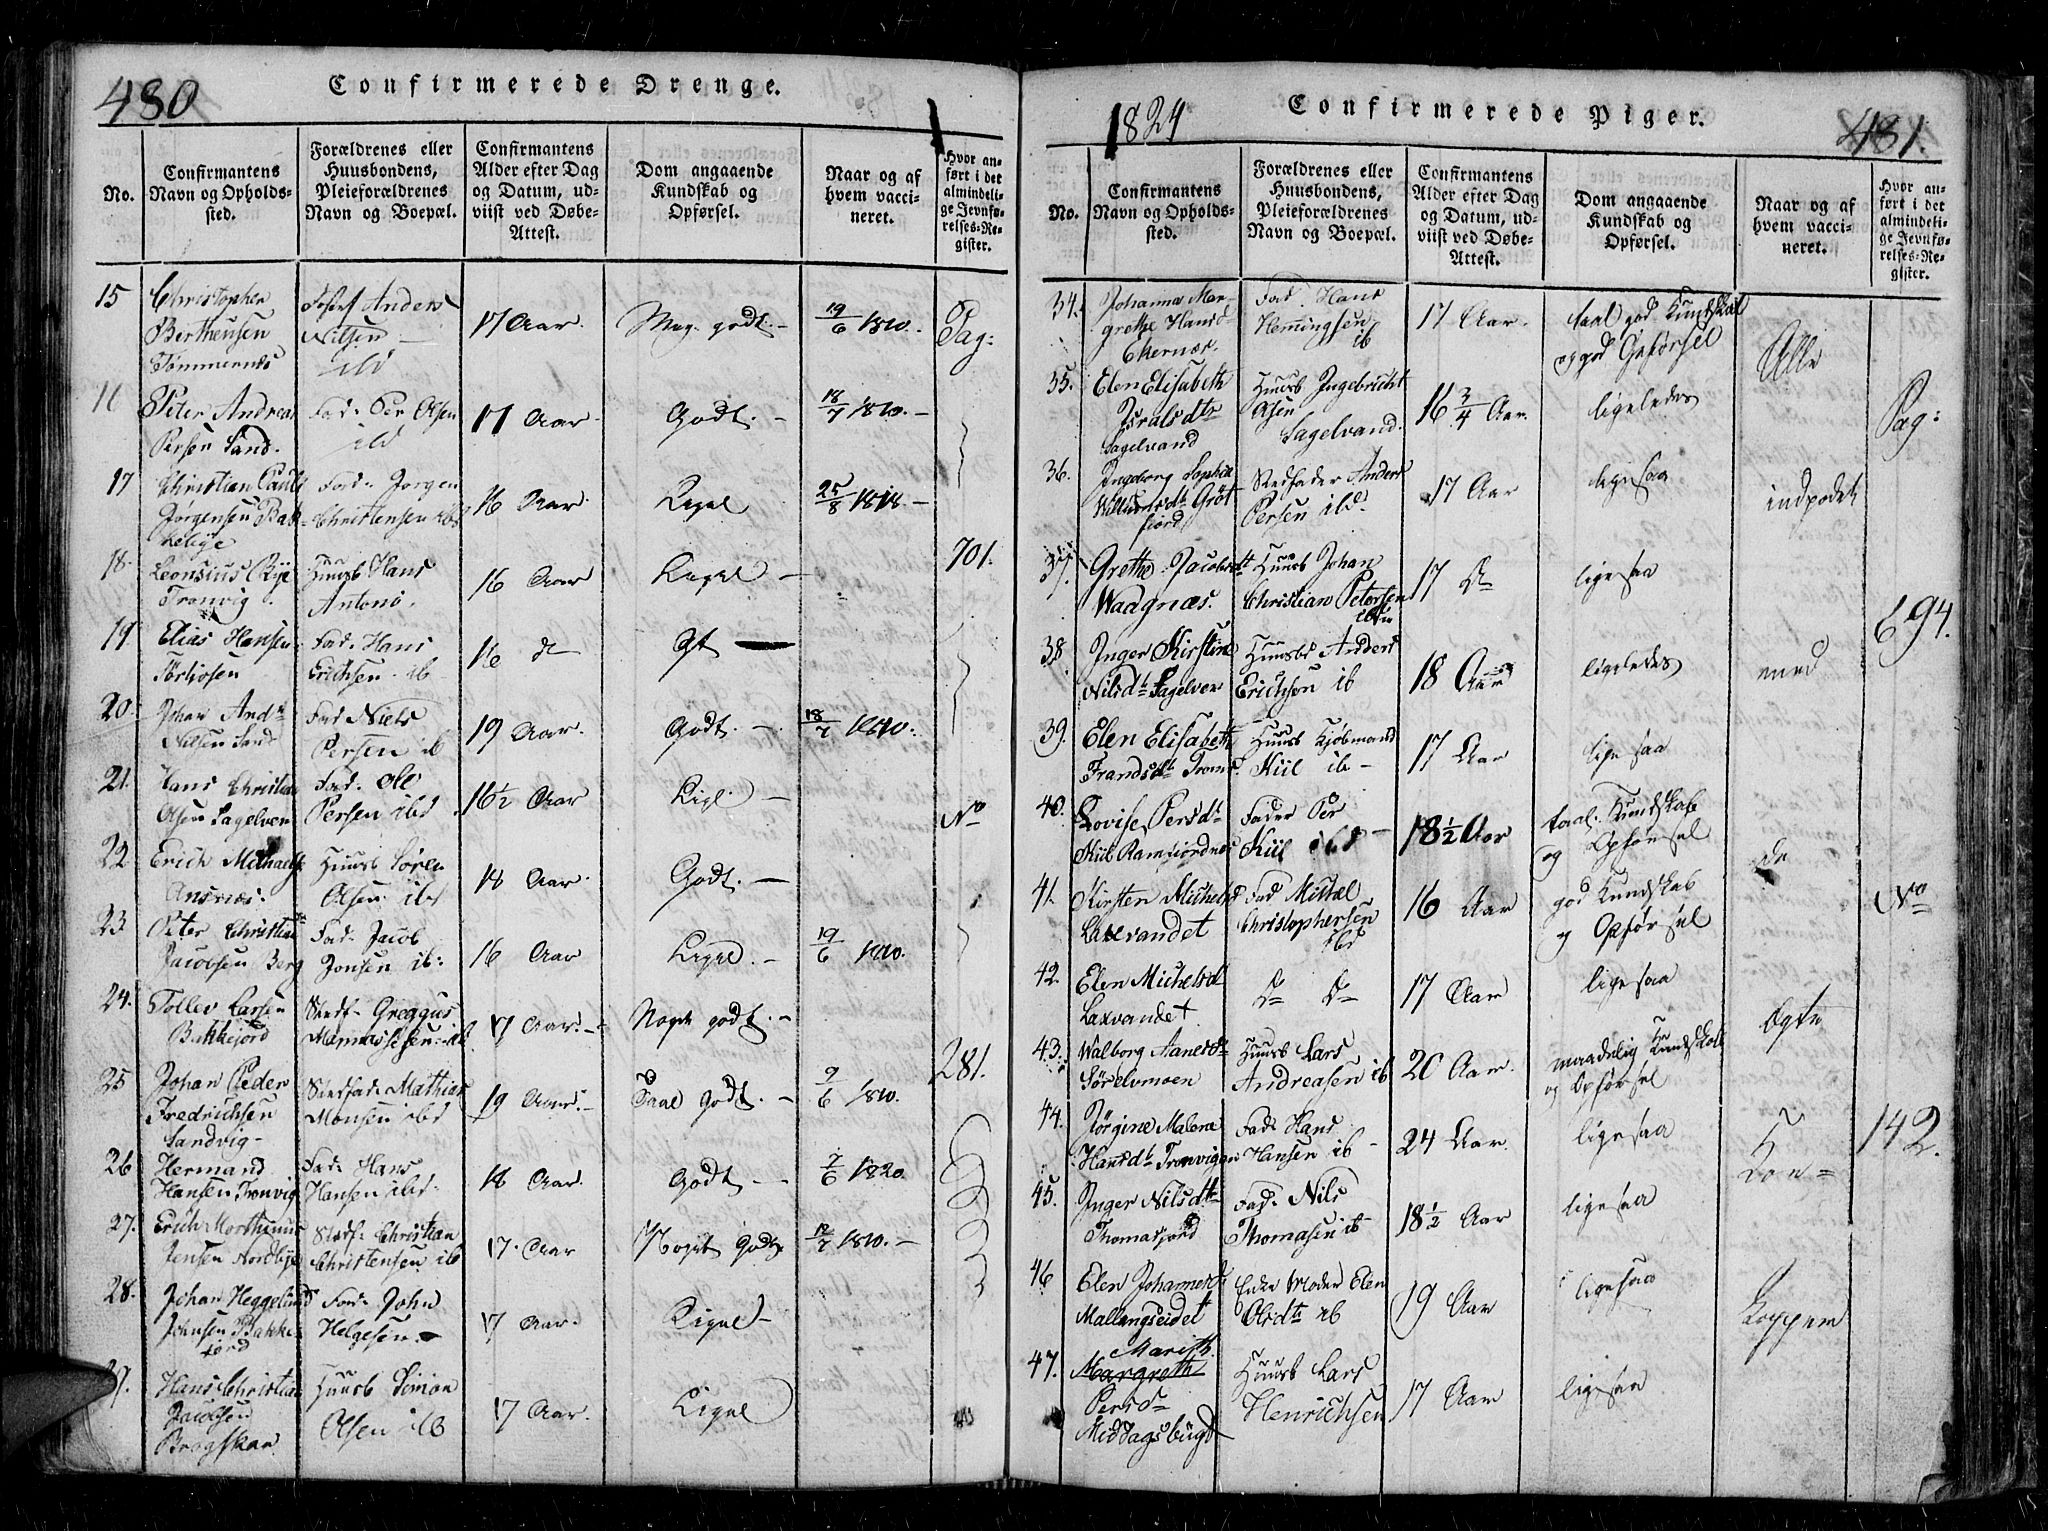 480
Confirmerede Drenge.
No.
Confirmantens
Navn og Opholds-
sted.
Forældrenes eller
Huusbondens,
Pleieforældrenes
Navn og Boepæl.
Confirmantens
Alder efter Dag
og Datum, ud-
viist ved Døbe-
Attest.
Dom angaaende
Kundskab og
Opførsel.
Naar og af
hvem vacci-
neret.
Hvor an-
ført i det
almindeli-
ge Jevnfø-
relses-Re-
gister.
15
Christopher
Bertheusen
Tømmernes
Anders
Nilsen
ibd
17 Aar.
Meg. godt.
19/6 1810.
Pag:
Peter Andreas
Persen Sand.
Fad. Per Olsen
ibd
17 Aar
Godt.
18/7 1810.
17
Christian Pauli
Jørgensen Bak-
kebye
Fad. Jørgen
Christensen ibd
16 Aar.
Ligel
25/8
18
Leonsius
Tronvig.
Huusb Hans
Antoni.
16 Aar
Ligel
701.
19
Elias Hansen
Fad. Hans
Erichsen ib
16 d
Gt
20
Johan And
Nilsen Sand
Fad Niels
Persen ib
19 Aar.
Godt.
18/7 1810.
21.
Hans Christian
Olsen Sagelven
Fad. Ole
Persen ibd
16½ Aar
Ligl.
No
22
Erich Michaels
Huusb Søren
Olsen ibd
18 Aar.
Godt.
23
Peter Christian
Jacobsen Berg
Fad. Jacob
Jonsen ib:
16 Aar
Ligel.
19/6 1810.
24.
Tollev Larsen
Bakkejord
Stedf. Greggus
Mannassesen ib
17 Aar.
Noget godt.
25
Johan Peder
Fredrichsen
Sandvig
Stedfad. Mathias
Monsen ibd
19 Aar.
Taal godt.
1810.
281.
26
Hermand
Hansen Tronvig
Fad. Hans
Hansen ibd.
18 Aar.
Godt
1820.
27.
Erich Morthinus
Jensen Nordbye
Stedf. Christian
Christensen ib
17. Aar
Noget Godt
1810.
28.
Johan Heggelund
Johnsen Bakke-
jord
Fad. John
Helgesen.
17 Aar.
Ligel
29.
Hans Christian
Jacobsen
Huusb Simon
Olsen ib
17 Aar.
Ligel
1824
Confirmerede Piger.
481.
No.
Confirmantens
Navn og Opholds-
sted.
Forældrenes eller
Huusbondens,
Pleieforældrenes
Navn og Boepæl.
Confirmantens
Alder efter Dag
og Datum, ud-
viist ved Døbe-
Attest.
Dom angaaende
Kundskab og
Opførsel.
Naar og af
hvem vacci-
neret.
Hvor an-
ført i det
almindeli-
ge Jevnfø-
relses-Re-
gister.
34.
Johanna Mar-
grethe Hansd
Ekernæs.
Fad. Hans
Hemingsen
ib
17 Aar.
taal god Kundskab
og god Opførsel
Alle
35.
Elen Elisabeth
Isralsdtr
Sagelvand
Huusb Ingebricht
Olsen
Sagelvand.
16 3/4 Aar.
ligeledes
Pag:
36.
Ingeborg Sophia
Grøt
fjord
Stedfader Anders
Persen ibd.
17 Aar
ligesaa
indpodet
37.
Grethe Jacobsdt
Waagnæs.
Huusb Johan
Christian Petersen
ibm
17 D
ligesaa
694.
38
Inger Kirstine
Nilsdt Sagelven
Huusb Anders
Erichsen ib
18 Aar
ligeledes
med
39.
Elen Elisabeth
Frandsdt Troms.
Huusb Kjøbmand
Kiil ib
17 Aar
ligesaa
40.
Lovise Persdt
Kiil Ramfiordnes
Fader Per
Kiil ibd
18½ Aar
taal. Kundskab
og Opførsel
de
41.
Kirsten Michelsd
Laxvandet
Fad Mickel
Christophersen
ibd
16 Aar
god Kundskab
og Opførsel
No
42.
Elen Michelsdt
Laxvandet
D D
17 Aar
ligesaa
ægte
43.
Walborg Aanesdt
Sørelvmoen
Huusb Lars
Andreasen ib
20 Aar.
maadelig Kundskab
og Opførsel
44.
Jørgine Malena
Hansdt Tronvigen
Fad. Hans
Hansen ib
24 Aar.
ligesaa
Ko=
142.
45.
Inger Nilsdt
Thomasjord
Fad. Nils
Thomasen ib
18½ Aar
ligesaa
46
Elen Johannesd
Mallangseidet
Enke Moder Elen
Olsdt ib
19 Aar
ligesaa
Kopper
47.
Marith
Margreth
Persd
Middagsbugt
Huusb Lars
Henrichsen
17 Aar
ligesaa